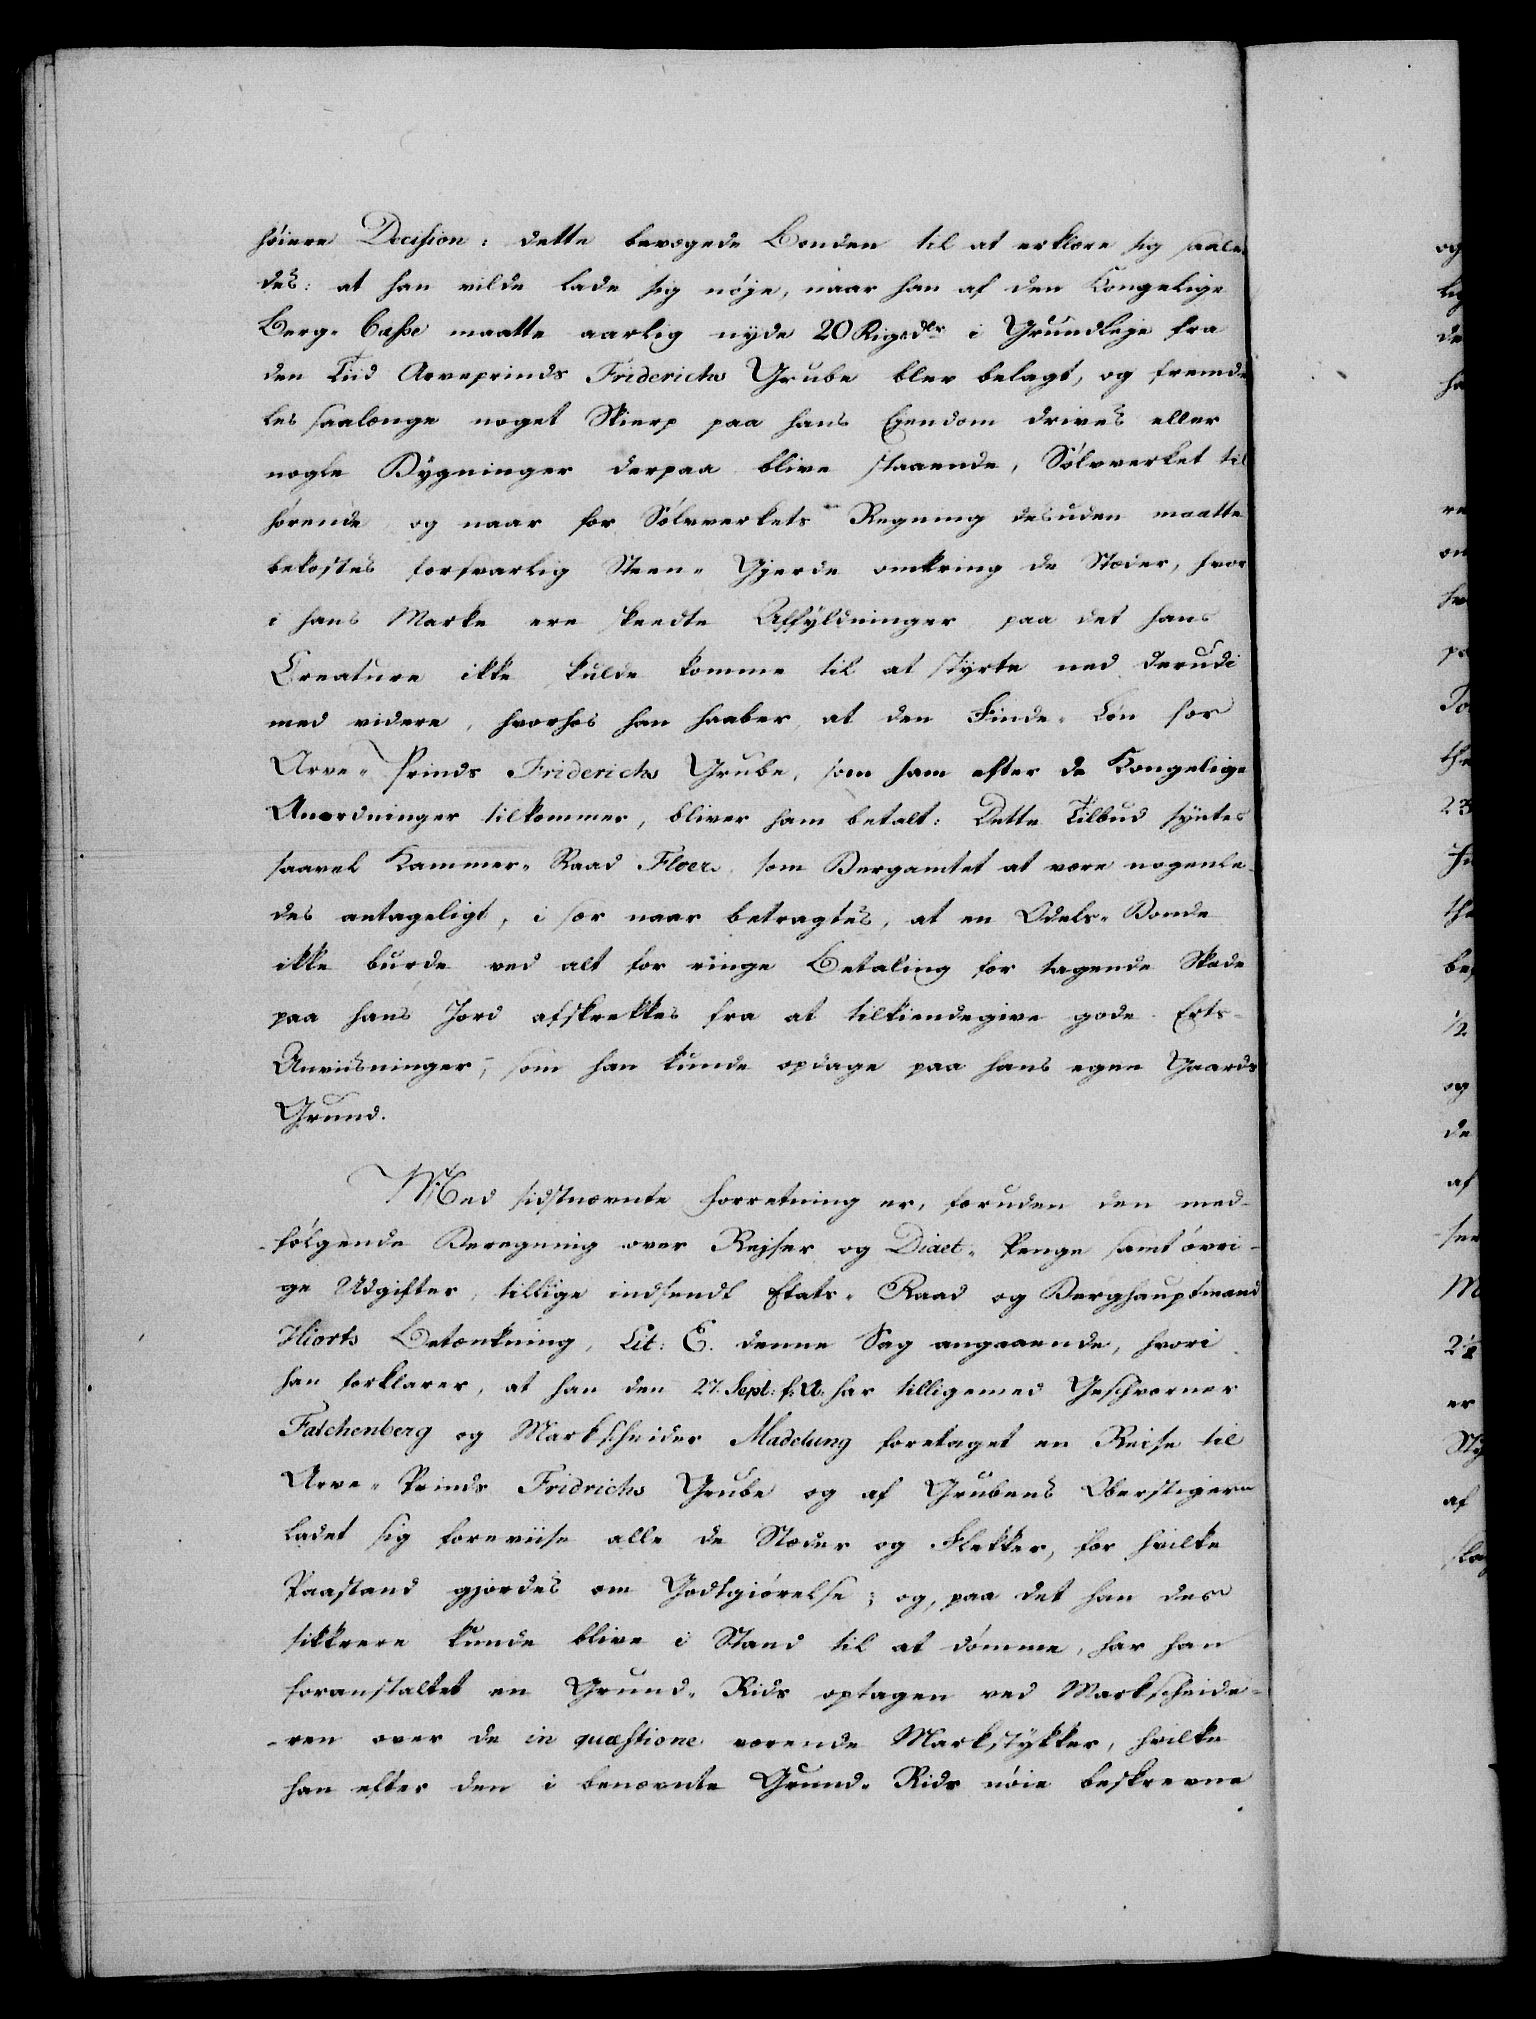 høiere Decision: dette bevægede Bonden til at erklære sig saale-
des: at han vilde lade sig nøje, naar han af den Kongelige
Berg-Casse maatte aarlig nyde 20 Rigsdlr i Grundleje fra
den Tiid Arveprinds Friderichs Grube blev belagt, og fremde
les saalænge noget Skierp paa hans Ejendom drives eller
nogle Bygninger derpaa blive staaende, Sølvverket til
hørende og naar for Sølvverkets Regning desuden maatte
bekostes forsvarlig Steen-Gjerde omkring de Stæder, hvor
i hans Marke ere skeedte Affyldninger paa det hans
Creature ikke skulde komme til at styrte ned derudi
med videre, hvorhos han haaber at den Finde-Løn for
Arve-Prinds Friderichs Grube, som ham efter de Kongelige
Anordninger tilkommer, bliver ham betalt: Dette Tilbud syntes
saavel Kammer-Raad Floer, som Bergamtet at være nogenle-
des antageligt, i sær naar betragtes, at en Odels-Bonde
ikke burde ved alt for ringe Betaling for tagende Skade
paa hans Jord afskrekkes fra at tilkiendegive gode Erts-
Anviisninger, som han kunde opdage paa hans egen Gaards
Grund.
Med sidstnævnte Forretning er, foruden den med-
følgende Beregning over Rejser og Diæt-Penge samt øvri-
ge Udgifter, tillige indsendt Etats-Raad og Berghauptmand
Hiorts Betænkning, Lit: E. denne Sag angaaende, hvori
han forklarer, at han den 27. Sept: f: A: har tilligemed Geschworner
Fatchenberg og Markscheider Madelung foretaget en Reise til
Arve-Prinds Fridrichs Grube og af Grubens Oberstigere
ladet sig foreviise alle de Stæder og Flekker, for hvilke
Paastand gjordes om Godtgiørelse; og, paa det han des
sikkrere kunde blive i Stand til at dømme, har han
foranstaltet en Grund-Rids optagen ved Markscheide-
-ren over de in quæstione værende Markstykker, hvilke
han efter den i benævnte Grund-Rids nøie beskrevne